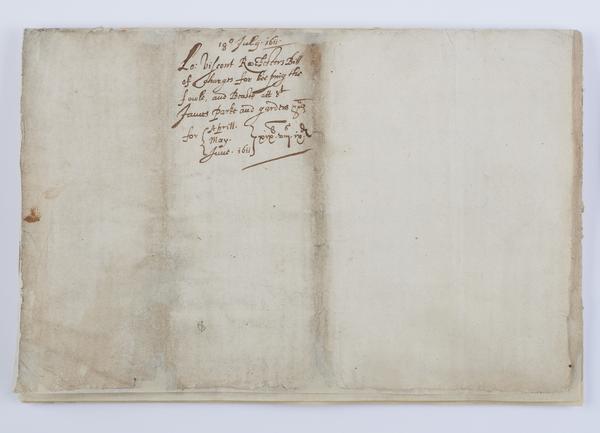 18° July. 1611.
Lo: Viscont Rochesters Bill
of Charges for keeping the
foule, and Beasts att St
James Parke and garden
for { Aprill.
May.
June. 1611 } xix